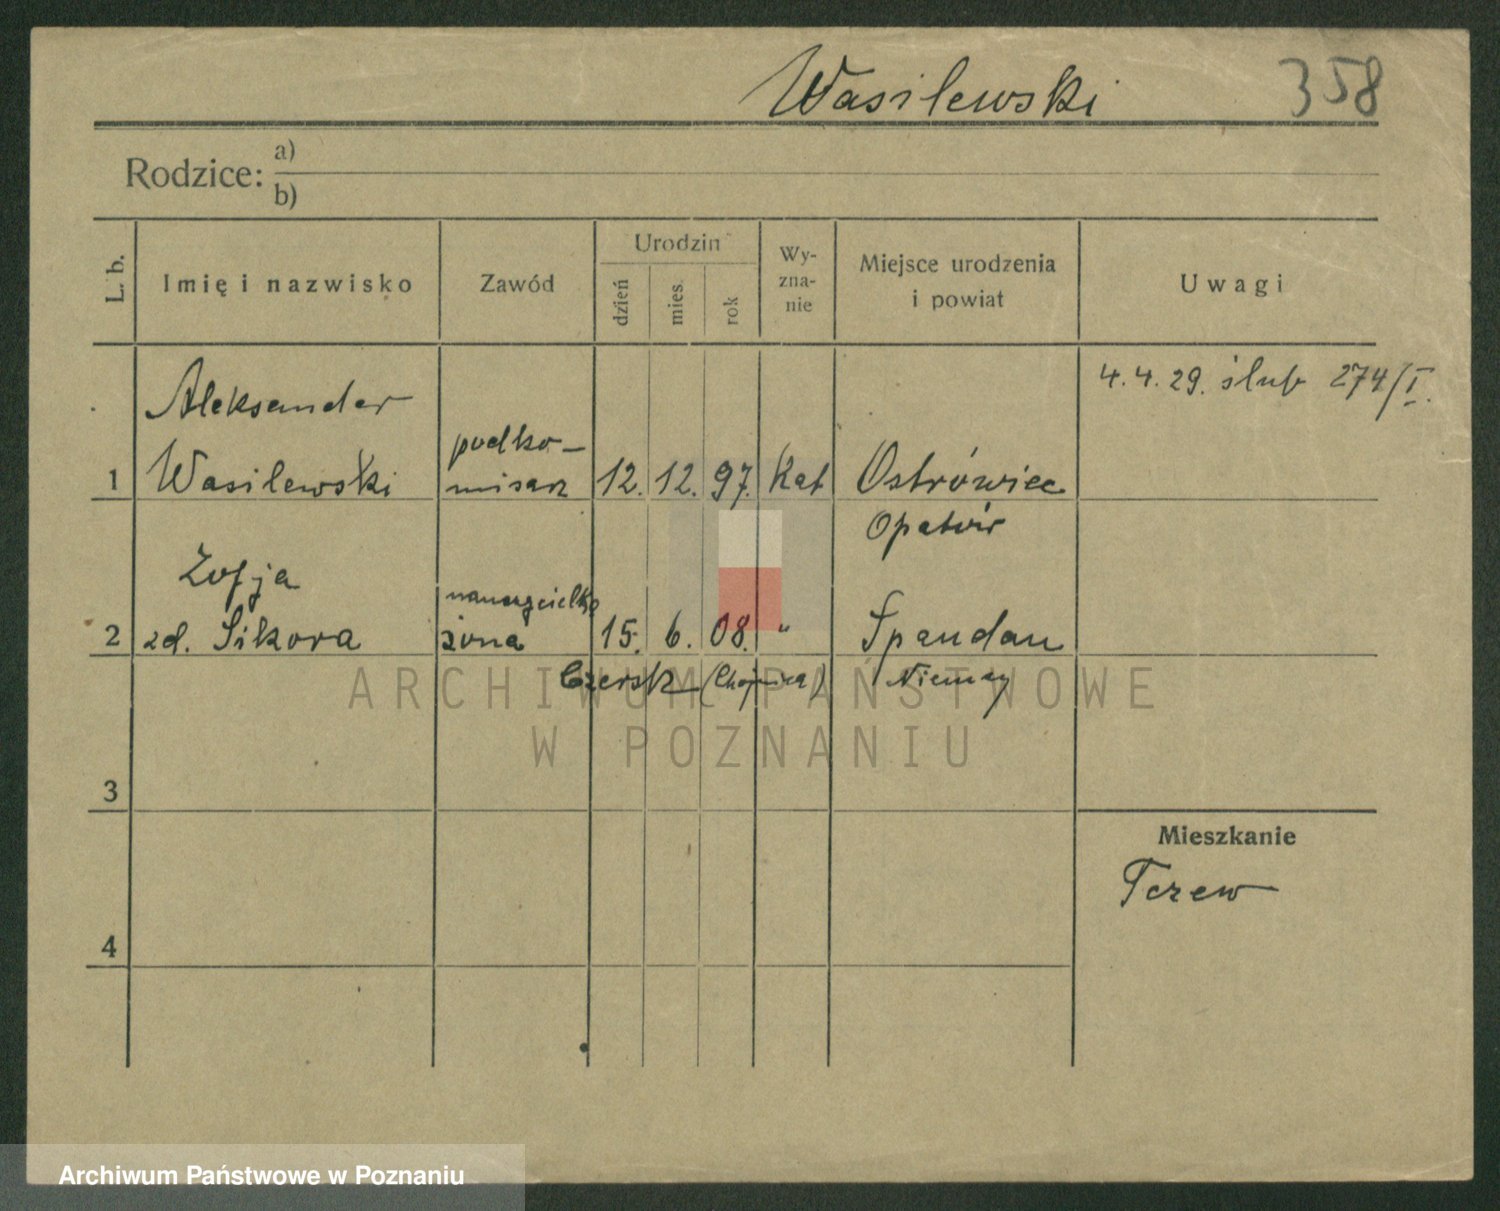 Wasilewski 358
Rodzice: a)
b)
L. b.
Imię i nazwisko
Zawód
Urodzin
dzień
mies.
rok
Wy-
zna-
nie
Miejsce urodzenia
i powiat
Uwagi
4.4.29. ślub 274/I.
Aleksander
Wasilewski
podko-
misarz
1 12. 12. 97. Kat Ostrówiec
Opatów
Zofja
nauczycielka
2 zd. Sikora żona 15. 6. 08. " Spandau
Czersk (Chojnice) Niemcy
ARCHIWUM PAŃSTWOWE
W POZNANIU
3
Mieszkanie
Tczew
4
Archiwum Państwowe w Poznaniu